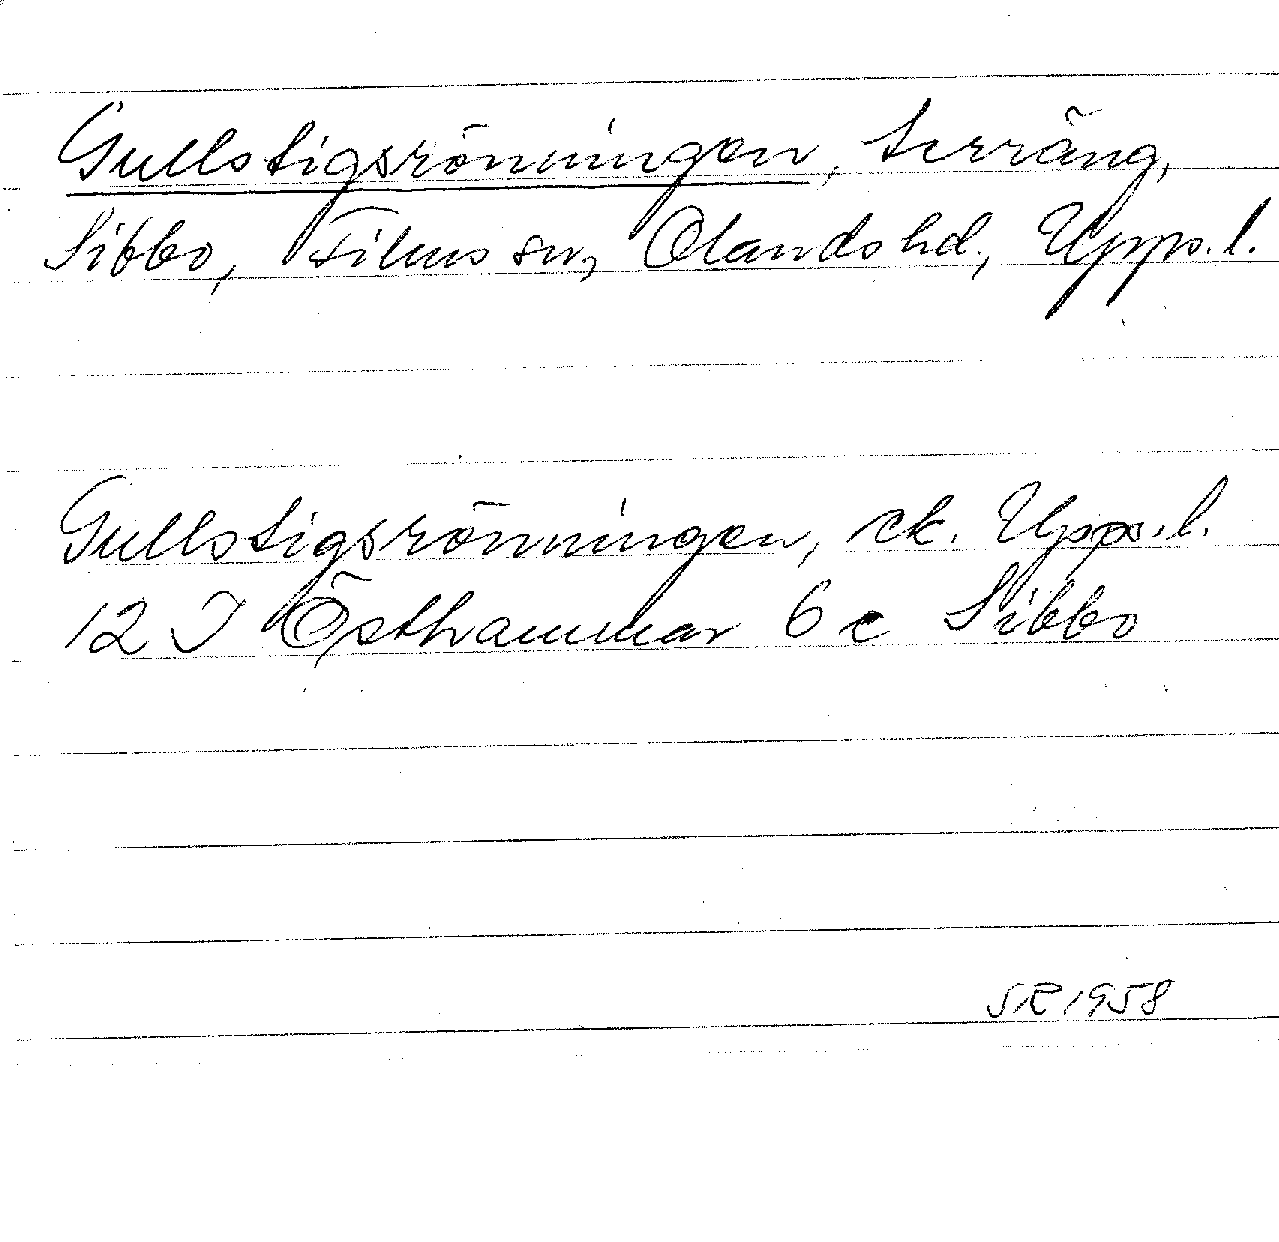 Gullstigsrönningen, terräng,
Sibbo, Films sn, Olands hd., Upps. l.
Gullstigsrönningen, ek. Upps. l.
12 I Östhammar 6 c Sibbo
SR 1958